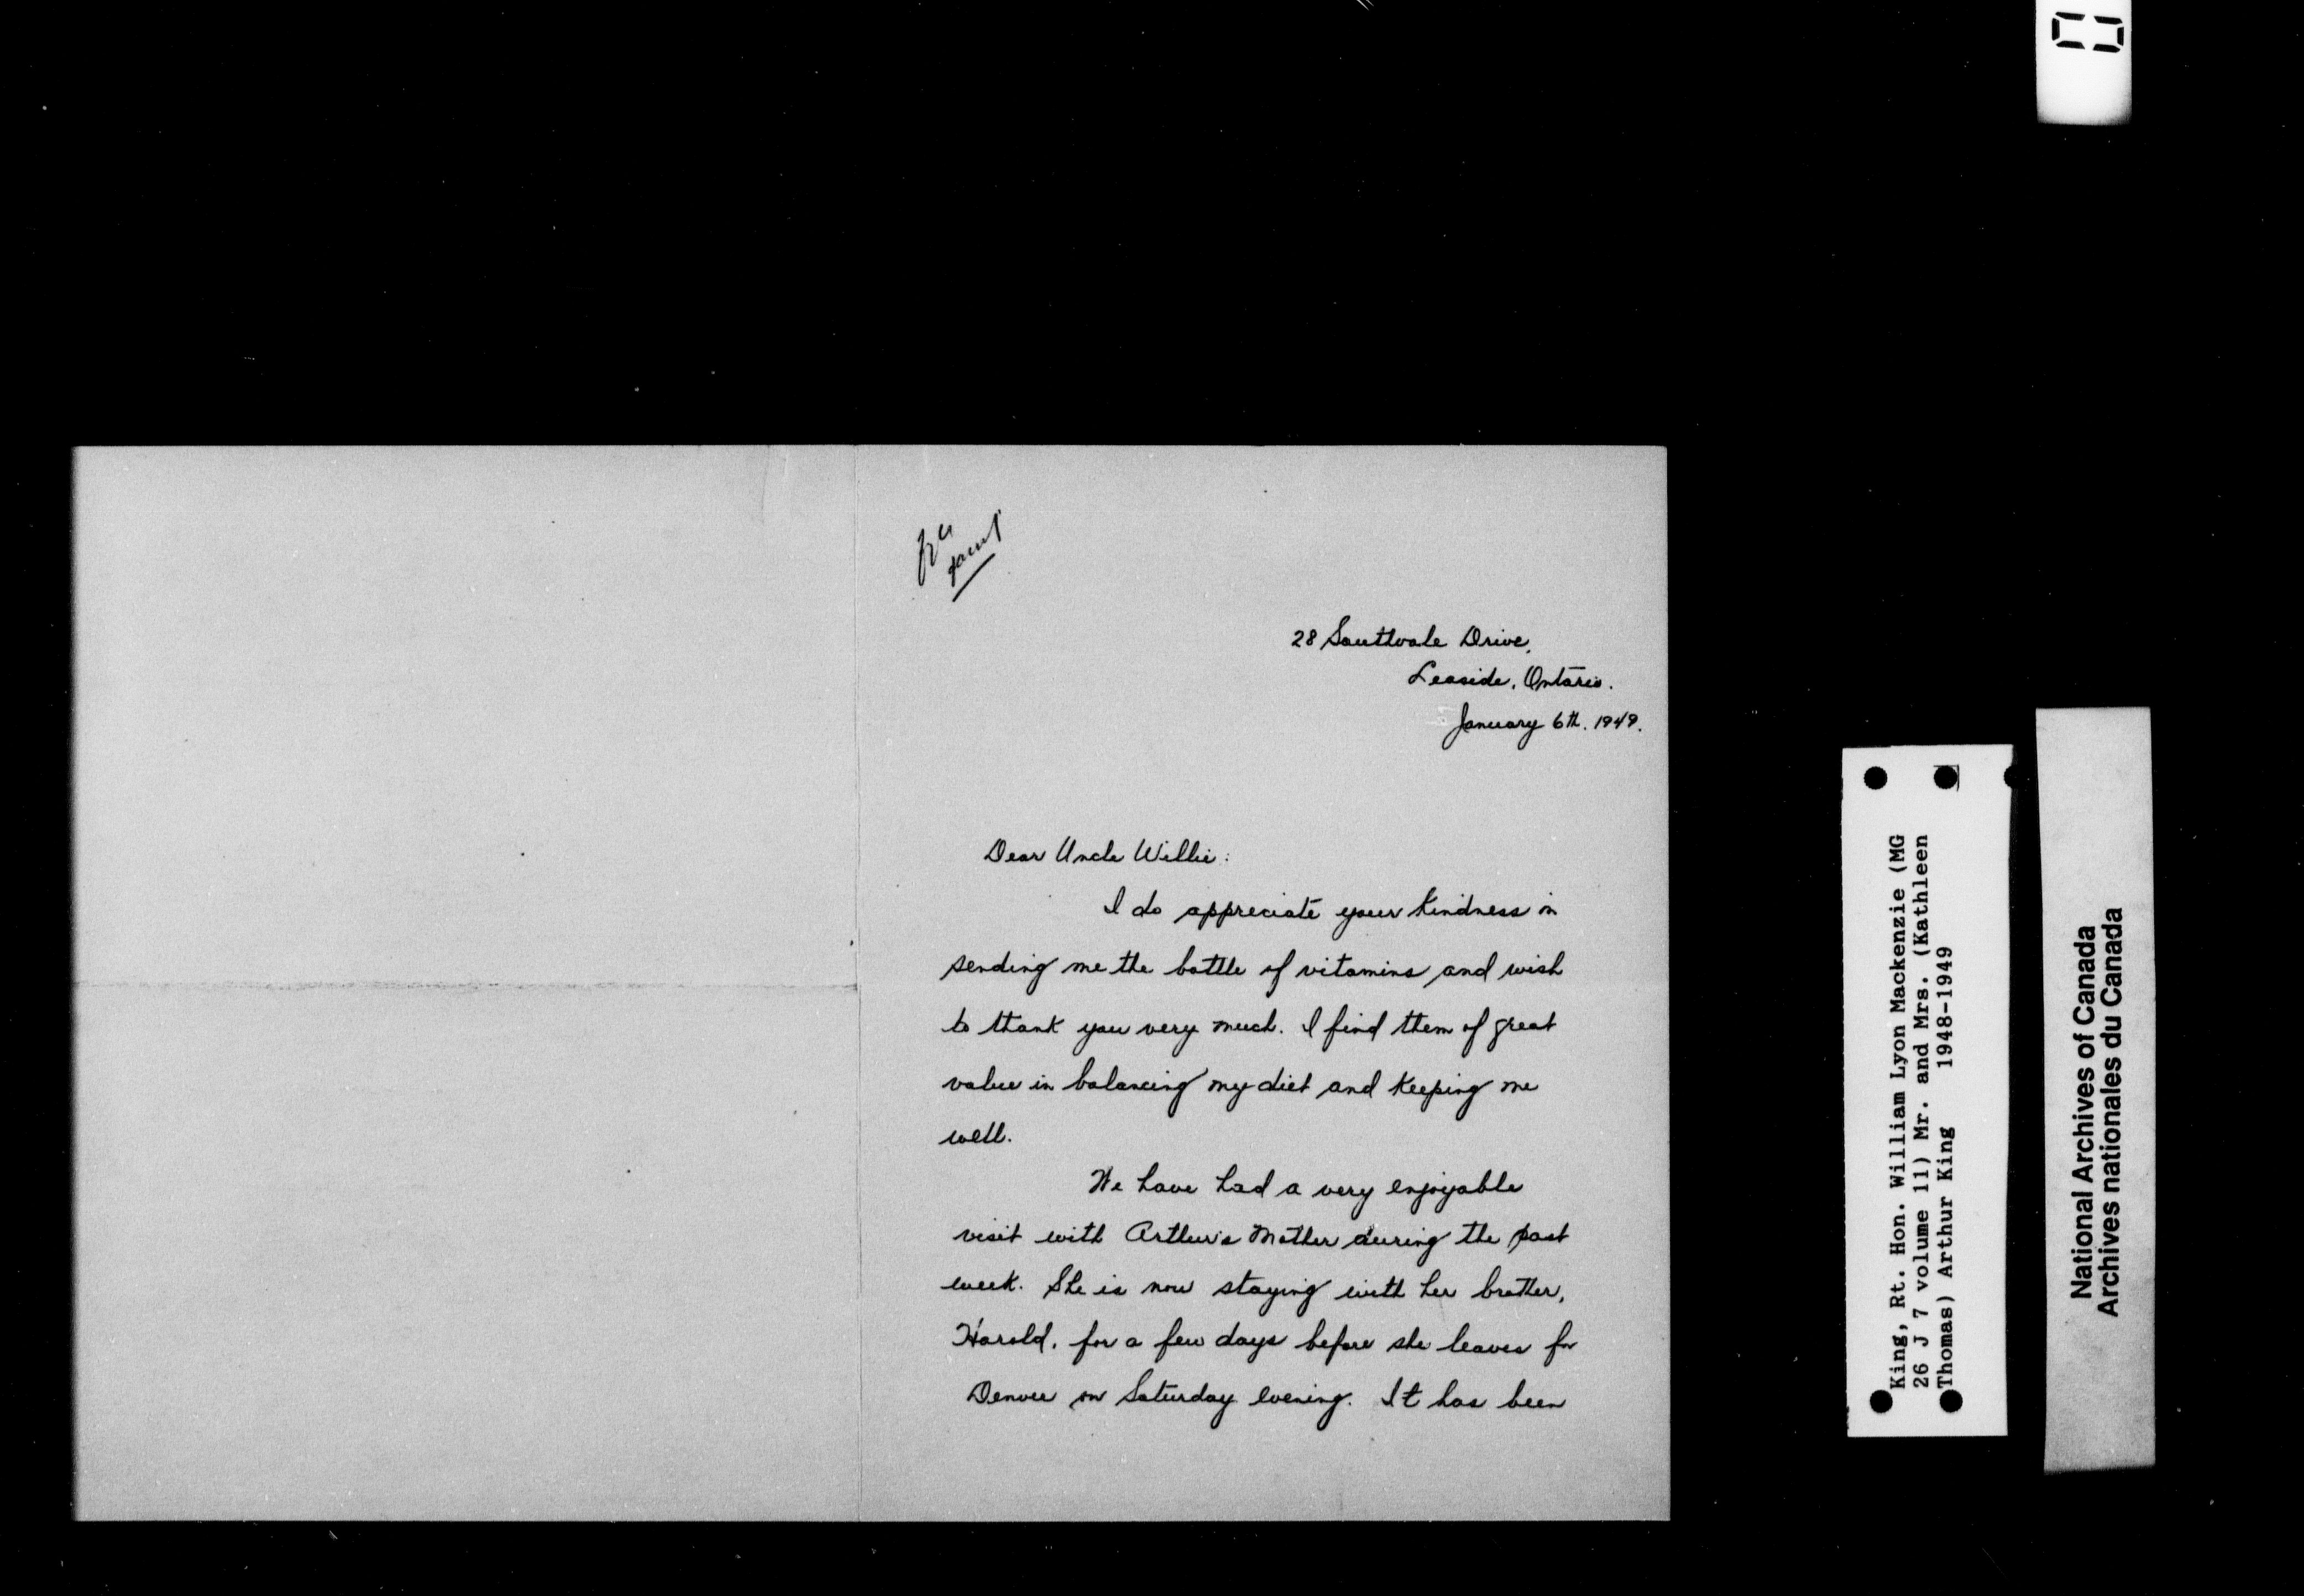 28 Southvale Drive,
Leaside, Ontario.
January 6th. 1949.
Dear Uncle Willie:
I do appreciate your kindness in
sending me the bottle of vitamins and wish
to thank you very much. I find them of great
value in balancing my diet and keeping me
well.
We have had a very enjoyable
visit with Arthur's Mother during the past
week. She is now staying with her brother,
Harold, for a few days before she leaves for
Denver on Saturday evening. It has been
King, Rt. Hon. William Lyon Mackenzie (MG
26 J 7 volume 11) Mr. and Mrs. (Kathleen
Thomas) Arthur King 1948-1949
National Archives of Canada
Archives nationales du Canada